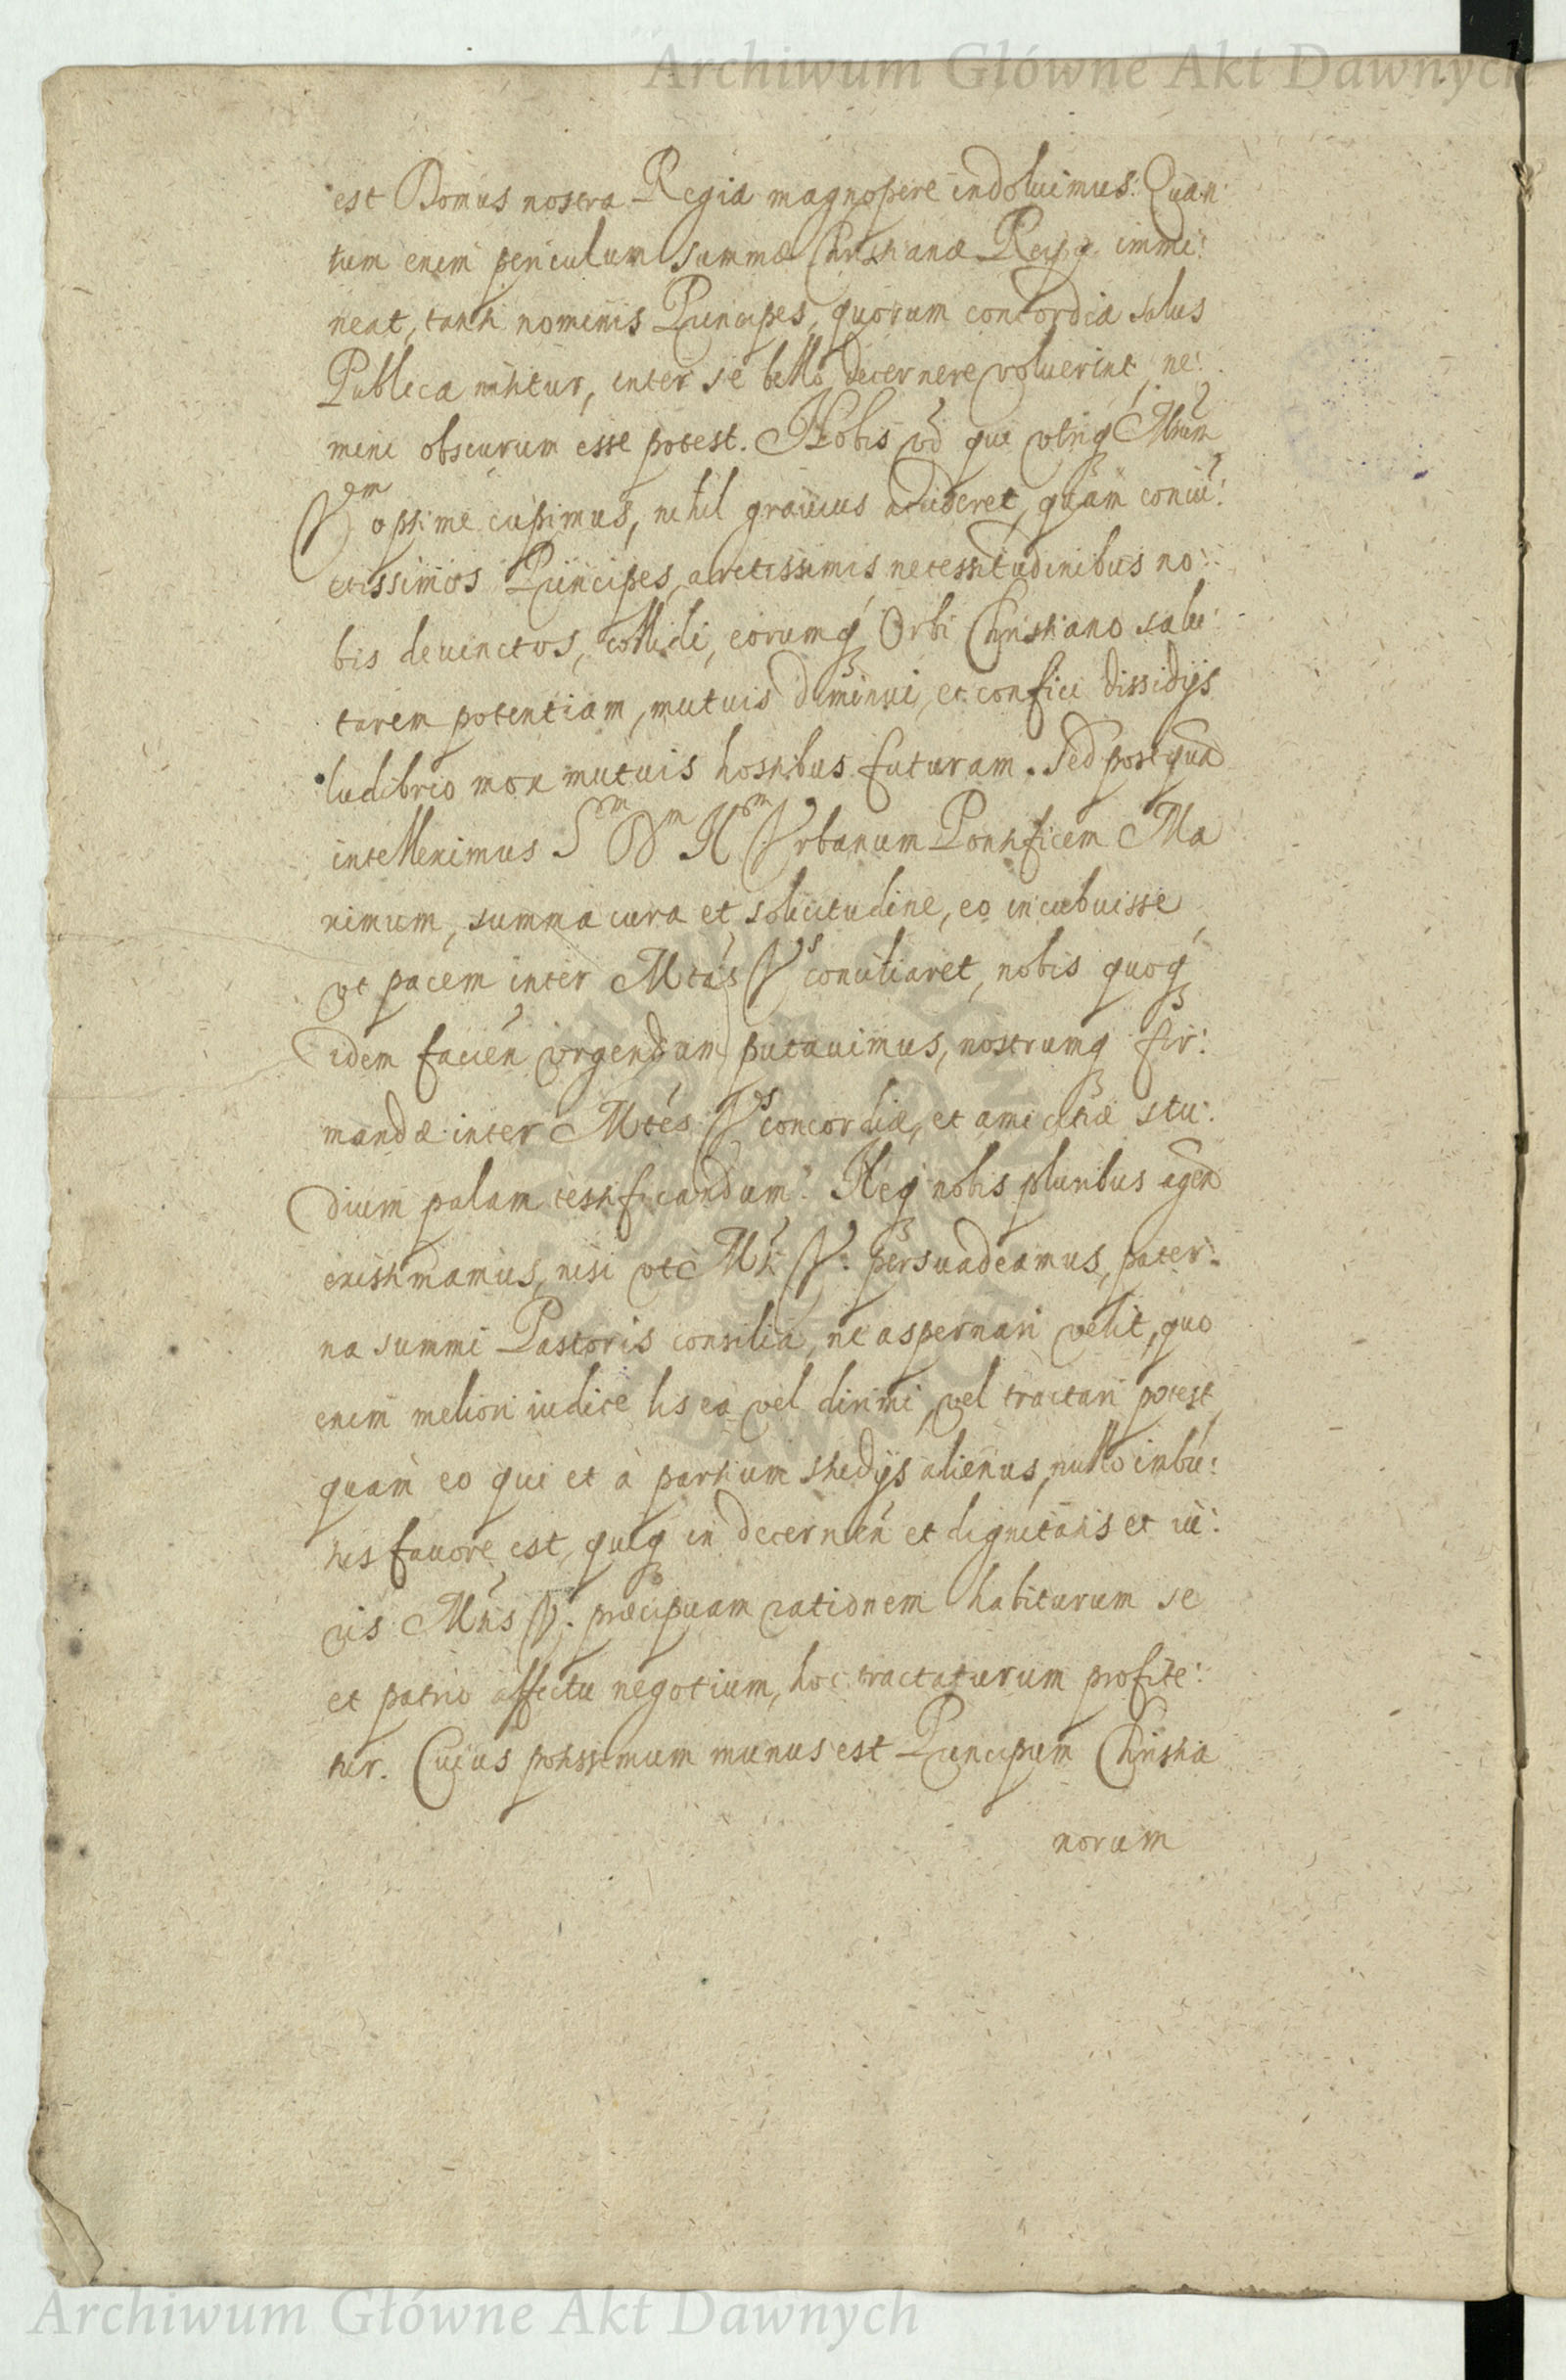 Archiwum Główne Akt Dawnych
est Domus nostra Regia magnopere indoluimus. Quan:
tum enim periculum summæ Christianæ Reipq immi:
neat, tanti nominis Principes, quorum concordia salus
Publica nititur, inter se bello decernere voluerint, ne:
mini obscurum esse potest. Nobis vo qui vtriq Mtum
Vrm optime cupimus, nihil grauius accideret, quam coniu:
ctissimos Principes, arctissimis necessitudinibus no:
bis deuinctos, collidi, eorumq Orbi Christiano salu:
tarem potentiam, mutuis diminui, et confici dissidijs
ludibrio mox mutuis hostibus futuram. Sed postquã
intelleximus Smm Dm Nrm Vrbanum Pontificem Ma
ximum, summa cura et solicitudine, eo incubuisse,
vt pacem inter Mtes Vs conciliaret, nobis quoq
idem facien vrgendum putauimus, nostrumq fir:
mandæ inter Mtes Vs concordiæ, et amicitiæ stu:
dium palam testificandum. Neq nobis pluribus agen
existimamus, nisi vt Mti V. persuadeamus, pater:
na summi Pastoris consilia, ne aspernari velit, quo
enim meliori iudice lis ea vel dirimi, vel tractari potest
quam eo qui et à partium studijs alienus, nullo imbu:
tus fauore est, quiq in decernen et dignitatis et iu:
ris Mtis V. præcipuam rationem habiturum se
et patrio affectu negotium, hoc tractaturum profite:
tur. Cuius potissimum munus est Principum Christia
norum
Archiwum Główne Akt Dawnych